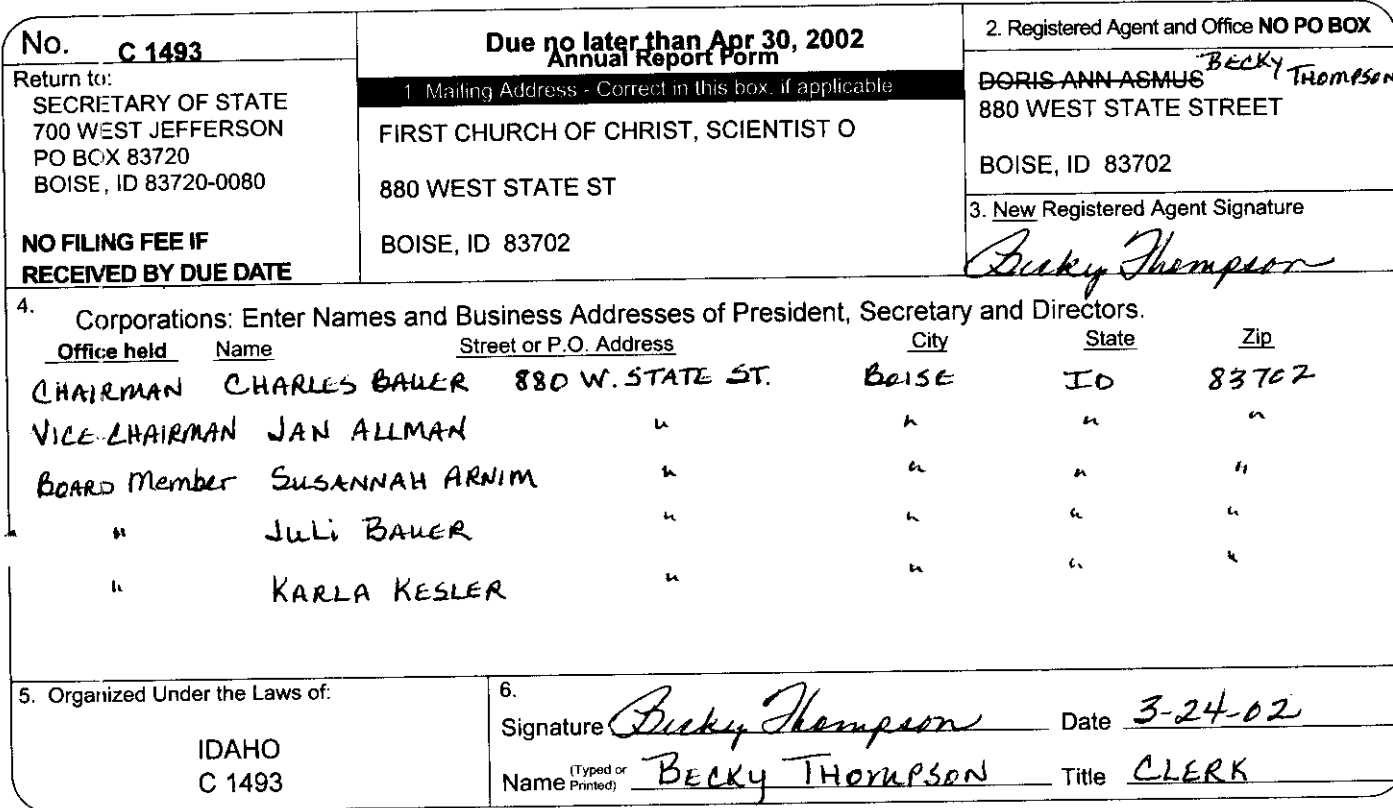 No. C 1493
Return to:
SECRETARY OF STATE
700 WEST JEFFERSON
PO BOX 83720
BOISE, ID 83720-0080
NO FILING FEE IF
RECEIVED BY DUE DATE
Due no later than Apr 30, 2002
Annual Report Form
1 Mailing Address - Correct in this box, if applicable
FIRST CHURCH OF CHRIST, SCIENTIST O
880 WEST STATE ST
BOISE, ID 83702
2. Registered Agent and Office NO PO BOX
DORIS ANN ASMUS BECKY THOMPSON
880 WEST STATE STREET
BOISE, ID 83702
3. New Registered Agent Signature
Becky Thompson
4. Corporations: Enter Names and Business Addresses of President, Secretary and Directors.
Office held Name Street or P.O. Address City State Zip
CHAIRMAN CHARLES BAUER 880 W. STATE ST. BOISE ID 83702
VICE-CHAIRMAN JAN ALLMAN " " " "
BOARD Member SUSANNAH ARNIM " " " "
" JULI BAUER " " " "
" KARLA KESLER " " " "
5. Organized Under the Laws of:
IDAHO
C 1493
6.
Signature Becky Thompson Date 3-24-02
Name (Typed or Printed) BECKY THOMPSON Title CLERK